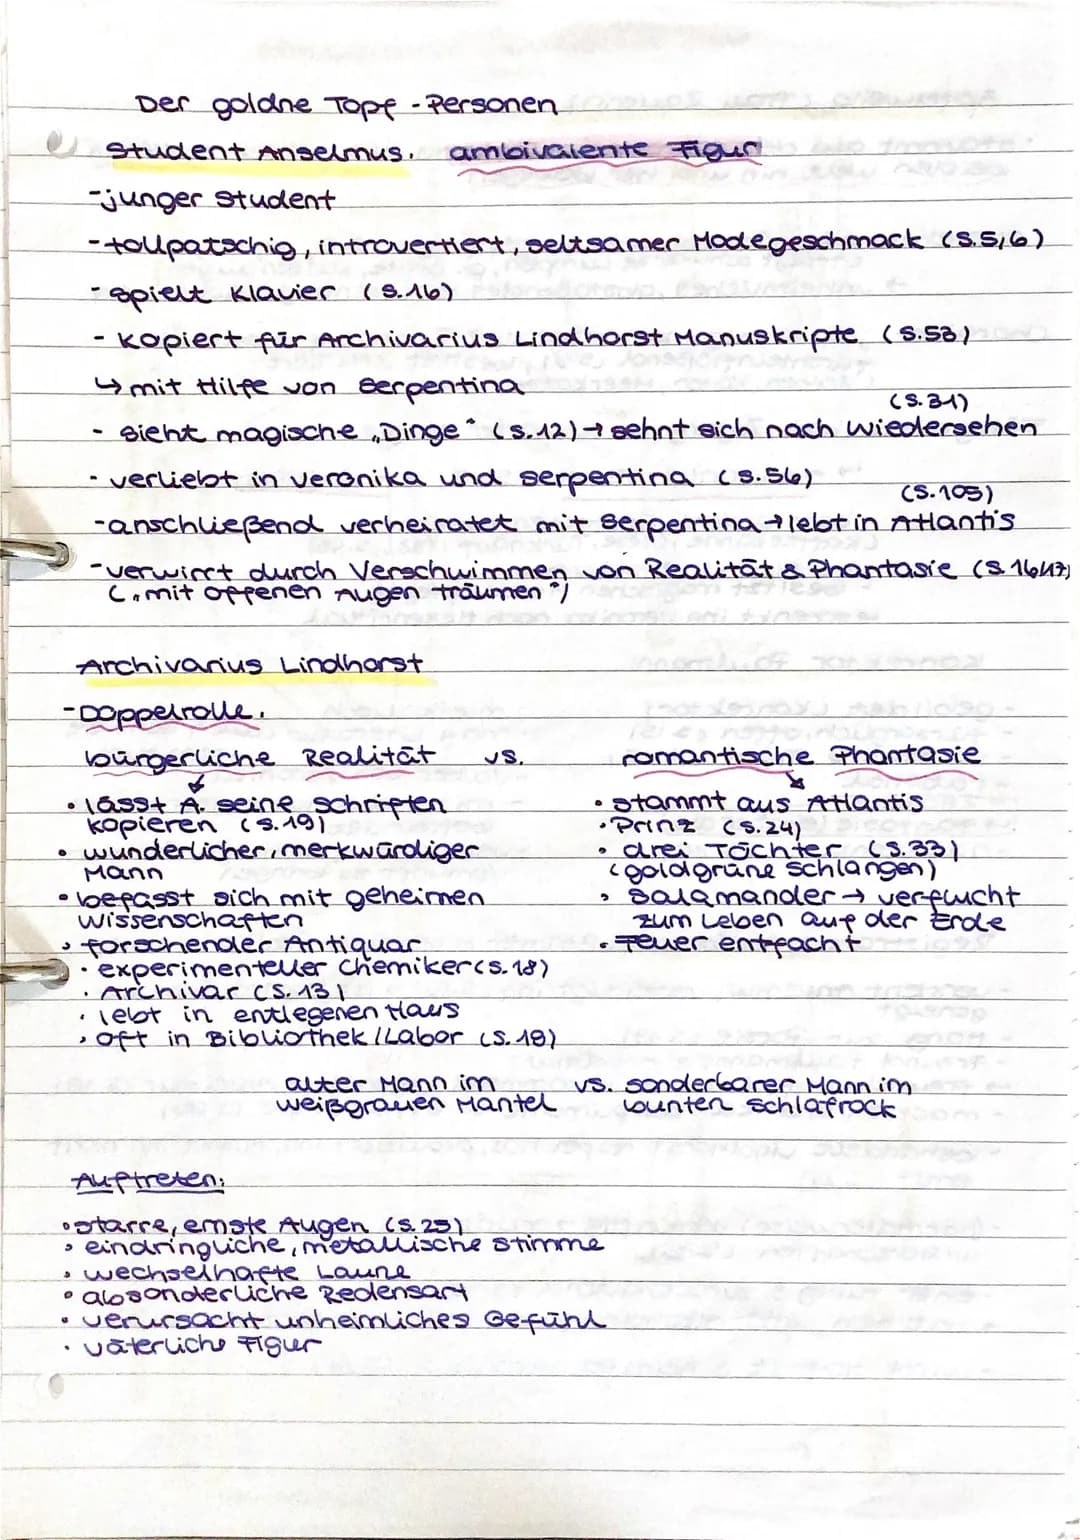 Der goldne Topf - Personen
Student Anselmus. ambivalente Figur
-junger Student
-tollpatschig, introvertiert, seltsamer Modegeschmack (S.5,6)
-spielt Klavier (S.16)
- kopiert für Archivarius Lindhorst Manuskripte (S.53)
↳ mit Hilfe von Serpentina
(S.31)
- sieht magische „Dinge“ (S.12) → sehnt sich nach Wiedersehen
- verliebt in Veronika und Serpentina (S.56)
(S.105)
-anschließend verheiratet mit Serpentina → lebt in Atlantis
-verwirrt durch Verschwimmen von Realität & Phantasie (S.16/17)
(„mit offenen Augen träumen“)
Archivarius Lindhorst
-Doppelrolle.
bürgerliche Realität vs. romantische Phantasie
• lässt A. seine Schriften
kopieren (S.19)
• wunderlicher, merkwürdiger
Mann
• befasst sich mit geheimen
Wissenschaften
• forschender Antiquar
• experimenteller Chemiker (S.18)
• Archivar (S.13)
• lebt in entlegenen Haus
• oft in Bibliothek/Labor (S.19)
• stammt aus Atlantis
• Prinz (S.24)
• drei Töchter (S.33)
(goldgrüne Schlangen)
• Salamander → verflucht
zum Leben auf der Erde
• Feuer entfacht
alter Mann im vs. sonderbarer Mann im
weißgrauen Mantel bunten Schlafrock
Auftreten:
• starre, ernste Augen (S.25)
• eindringliche, metallische Stimme
• wechselhafte Laune
• absonderliche Redensart
• verursacht unheimliches Gefühl
• väterliche Figur